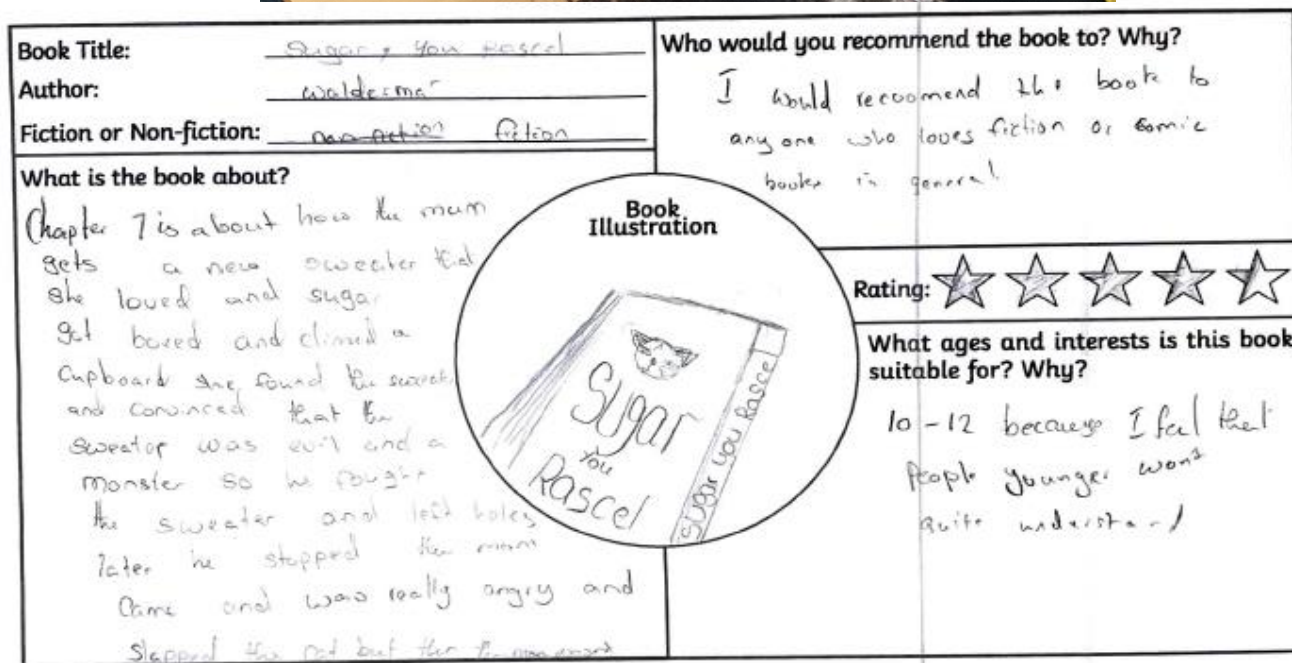 Book Title: Sugar, You Rascel
Author: Walderma
Fiction or Non-fiction: non-fiction fiction
What is the book about?
Chapter 7 is about how the mum
gets a new sweater that
she loved and sugar
got bored and climed a
cupboard she found the sweat
and convinced that the
sweator was evil and a
monster so he fought
the sweater and left holes
later he stopped the mom
came and was really angry and
slapped the cat but then the
Book
Illustration
Sugar
You
Rascel
Sugar You Rascel
Who would you recommend the book to? Why?
I would recoomend the book to
any one who loves fiction or comic
books in general
Rating:
What ages and interests is this book
suitable for? Why?
10-12 because I feel that
people younger won't
quite understand